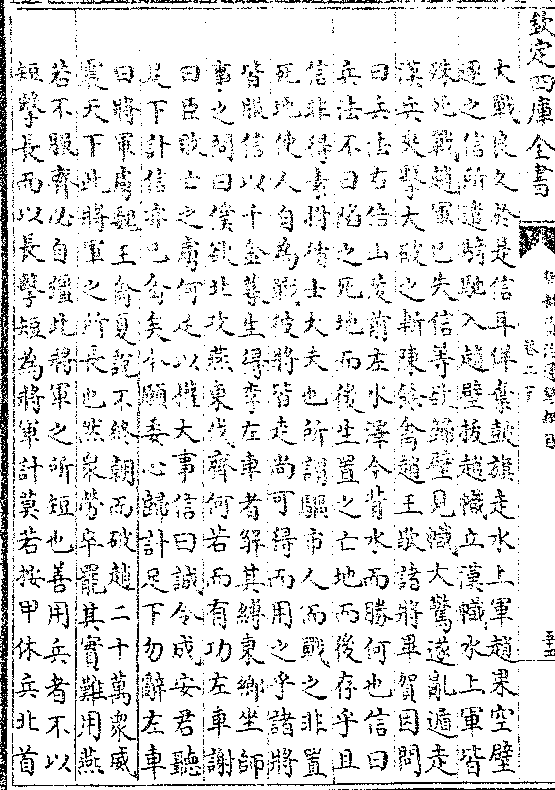 欽定四庫全書
卷二下
大戰良久於是信耳佯棄鼓旗走水上軍趙果空壁
逐之信所遣騎馳入趙壁拔趙幟立漢幟水上軍皆
殊死戰趙軍已失信等欲歸壁見幟大驚遂亂遁走
漢兵夾擊大破之斬陳餘禽趙王歇諸將畢賀因問
曰兵法右倍山陵前左水澤今背水而勝何也信曰
兵法不曰陷之死地而後生置之亡地而後存乎且
信非得素拊循士大夫也所謂驅市人而戰之非置
死地使人自為戰彼將皆走尚可得而用之乎諸將
皆服信以千金募生得李左車者解其縛東鄉坐師
事之問曰僕欲北攻燕東伐齊何若而有功左車謝
曰臣敗亡之虜何足以權大事信曰誠令成安君聽
足下計信亦已禽矣今願委心歸計足下勿辭左車
曰將軍虜魏王禽夏說不終朝而破趙二十萬衆威
震天下此將軍之所長也然衆勞卒罷其實難用燕
若不服齊必自彊此將軍之所短也善用兵者不以
短擊長而以長擊短為將軍計莫若按甲休兵北首